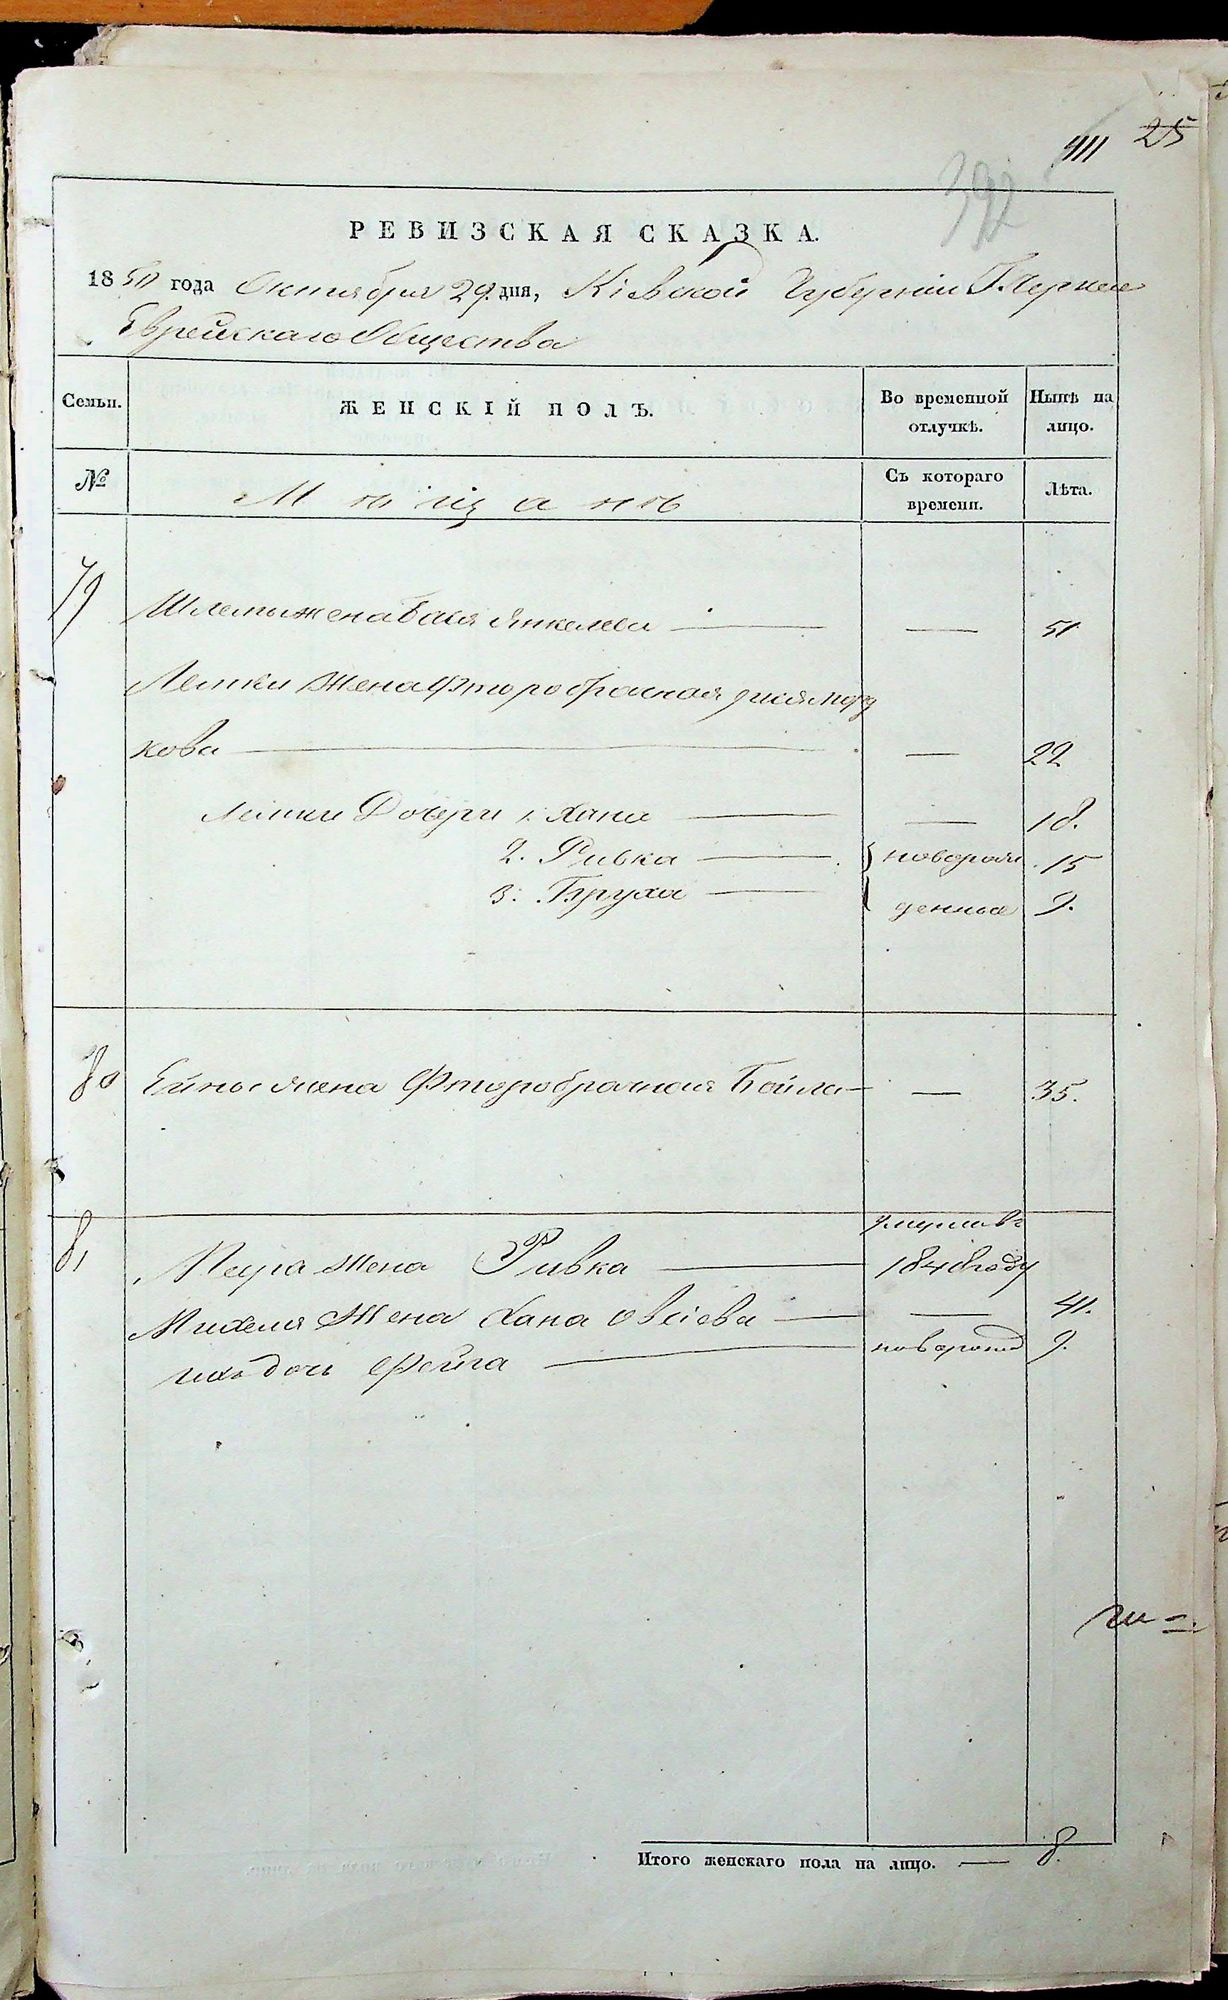 411 25
392
РЕВИЗСКАЯ СКАЗКА.
1850 года Октября 29. дня, Кіевской Губерніи
Еврейскаго Общества
Семьи. ЖЕНСКІЙ ПОЛЪ. Во временной отлучкѣ. Нынѣ на лицо.
№ Мѣщанъ Съ котораго времени. Лѣта.
79 Шлемы жена Бася Янкелева — — 51
Лемки жена фторобрачная Мор
кова — — 22
Лемки Дочери 1. Хана — — 18.
2. Ривка — новорож 15
3. Бруха — денные 9.
80 жена Фторобрачная Бейла — — 35.
81 жена Ривка — 1848 году
Михеля жена Хана Овсіева — — 41.
ихъ дочь Фейга — новорожд 9.
Итого женскаго пола на лицо. — 8.